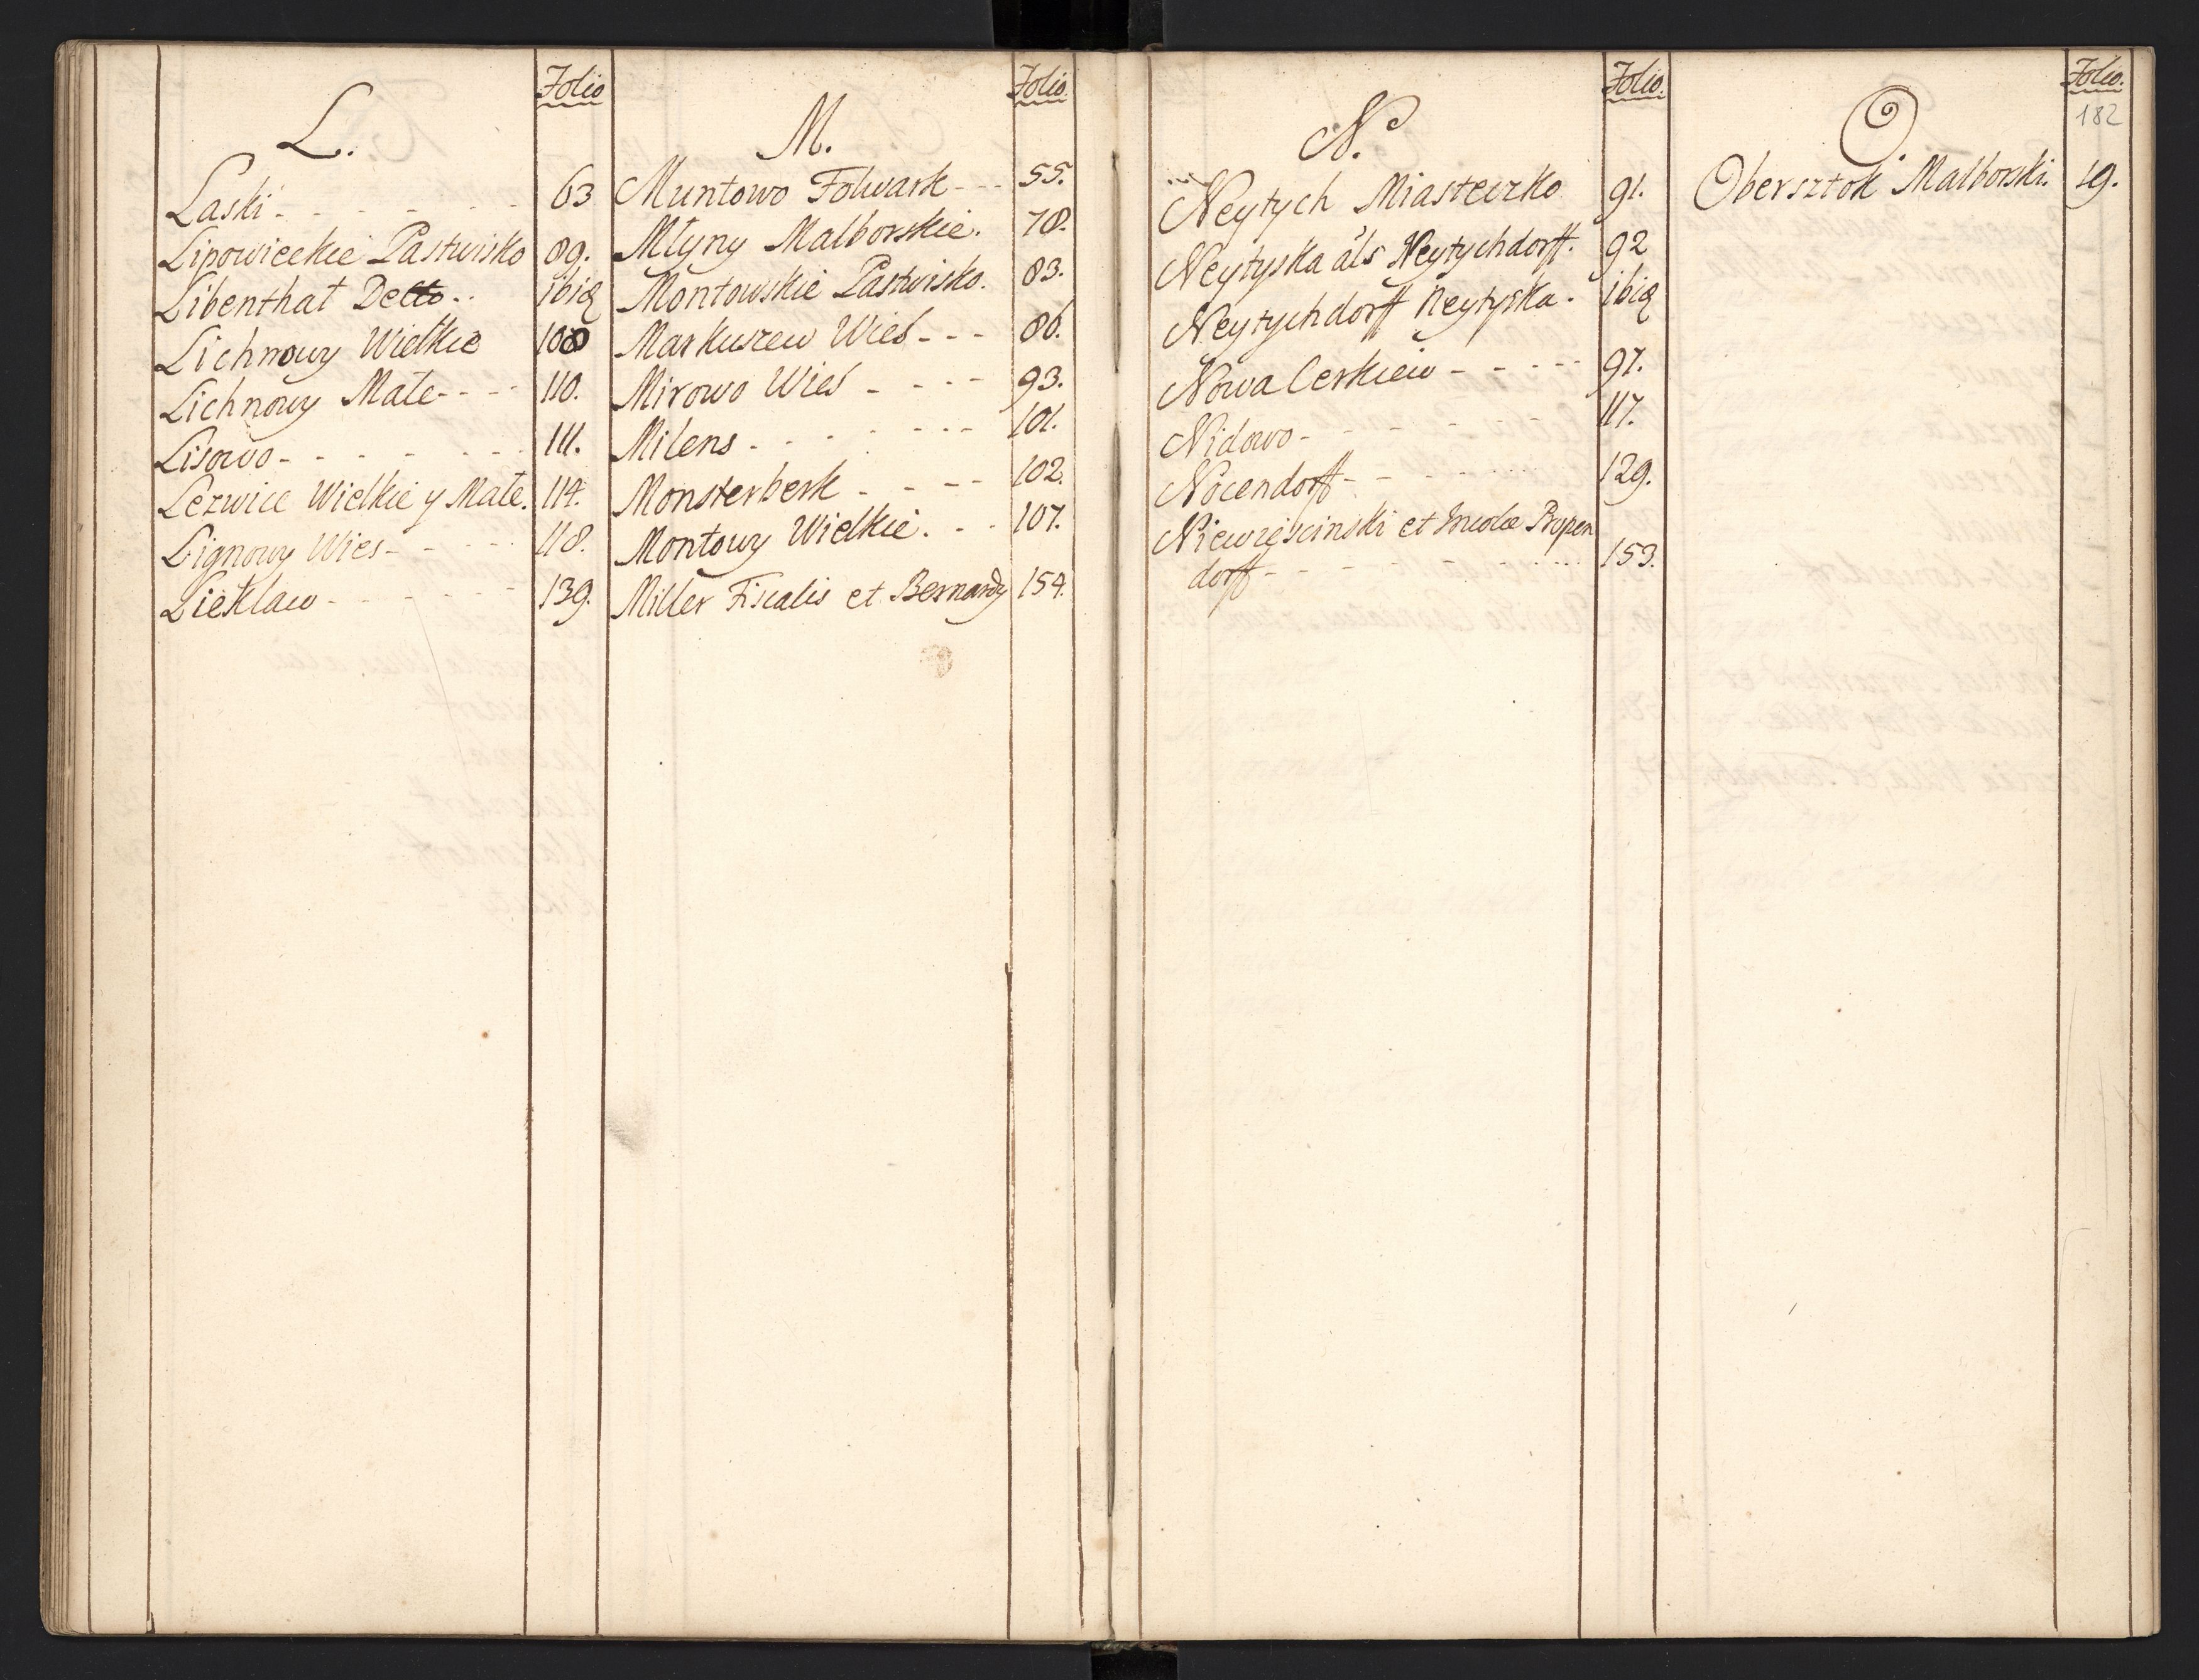 Folio
L.
Laski - - - - - - 63
Lipowieckie Pastwisko 89.
Libenthat Detto. . ibid
Lichnowy Wielkie 108
Lichnowy Małe - - - 110.
Lisowo - - - - - - 111.
Lezwice Wielkie y Małe. 114.
Lignowy Wies - - - - 118.
Lieklaw - - - - - - 139.
Folio
M.
Muntowo Folwark - - - 55.
Młyny Malborskie. 78.
Montowskie Pastwisko. 83.
Markuszew Wies - - - 86.
Mirowo Wies - - - - 93.
Milens - - - - - - - 101.
Monsterberk - - - - 102.
Montowy Wielkie. - - 107.
Miller Fiscalis et Bernardy 154.
Folio.
N.
Neytych Miasteczko 91.
Neytyska als Neytychdorff. 92
Neytychdorff Neytyska. ibid
Nowa Cerkiew - - - - - 97.
Nidowo - - - - - - - 117.
Nocendorff - - - - - - 129.
Niewiescinski et Incolæ Propen
dorff - - - - - - - - 153.
Folio.
182
O
Obersztok Malborski. 19.